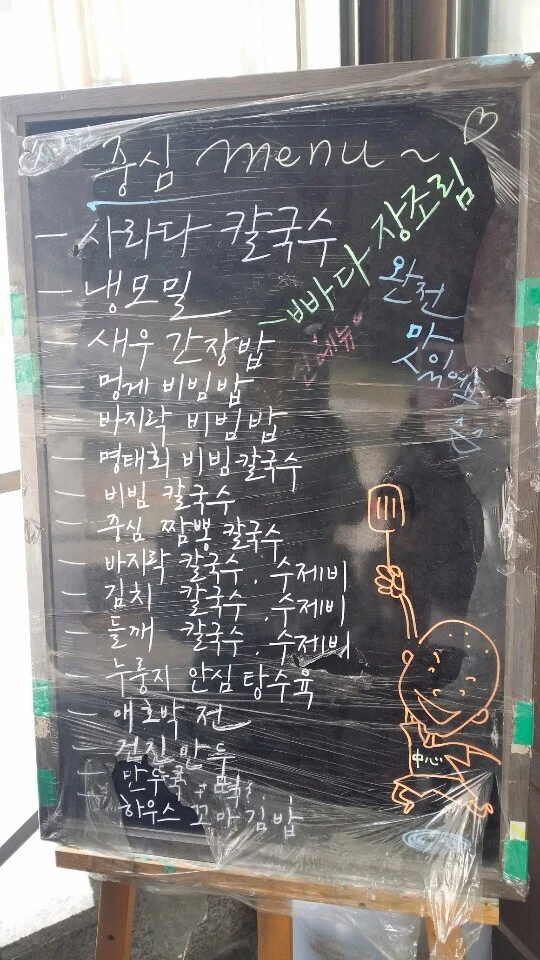 중심 menu ~ ♡
- 사라다 칼국수
- 냉모밀
- 빠다 장조림
완전
맛있어요
신메뉴
- 새우 간장밥
- 멍게 비빔밥
- 바지락 비빔밥
- 명태회 비빔칼국수
- 비빔 칼국수
- 중심 짬뽕 칼국수
- 바지락 칼국수 . 수제비
- 김치 칼국수 . 수제비
- 들깨 칼국수 . 수제비
- 누룽지 안심 탕수육
- 애호박 전
- 건진 만두
- 만두국 + 떡
하우스 꼬마김밥
中心